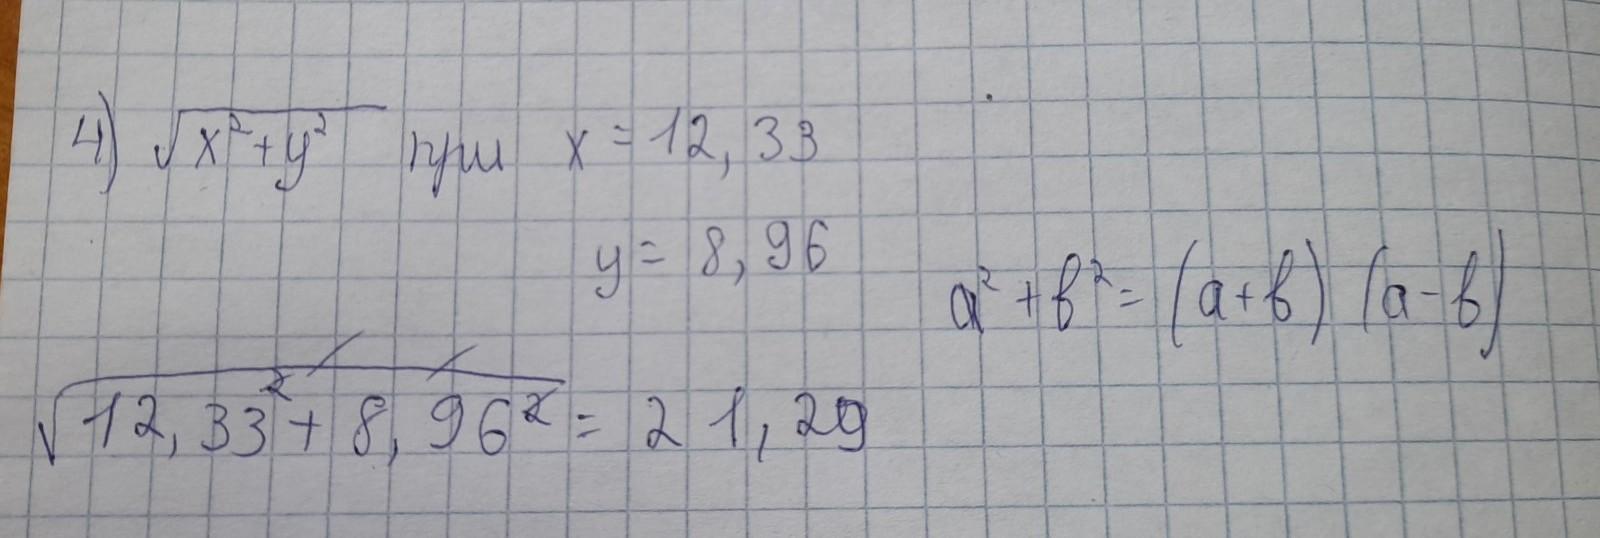 4) √x²+y² при x = 12,33
y = 8,96
a² + b² = (a+b) (a-b)
√12,33² + 8,96² = 21,29